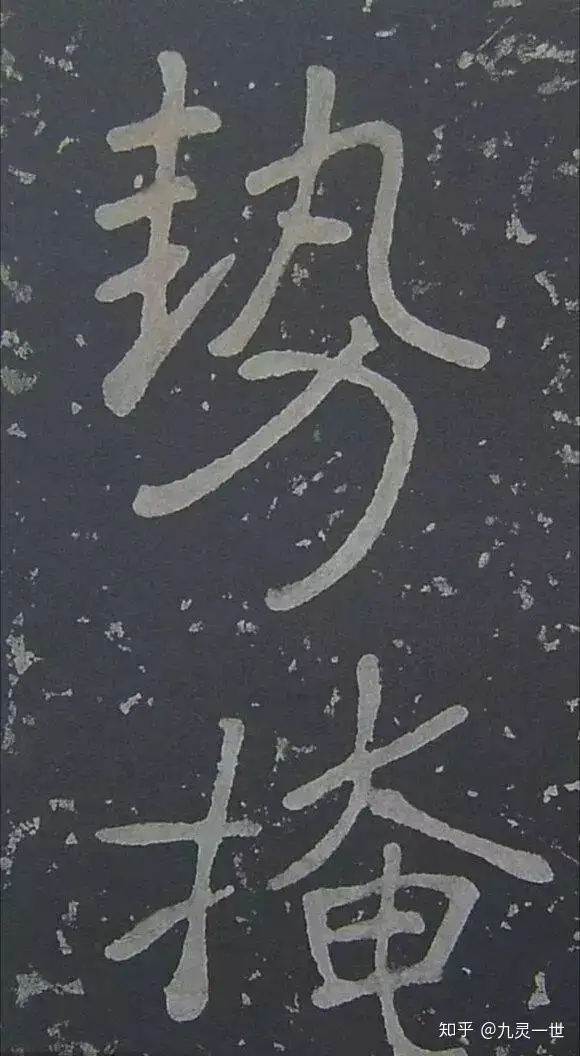 勢
掩
知乎 @九灵一世